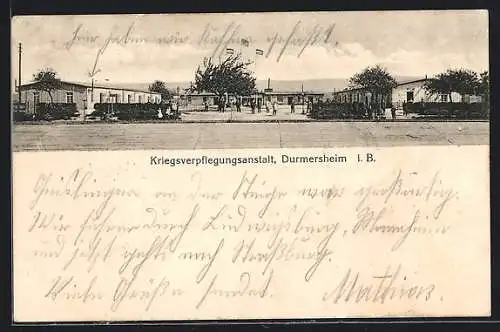 hier haben wir Kaffee gefaßt.
Kriegsverpflegungsanstalt, Durmersheim i. B.
Geislingen an der Steige war großartig.
Wir fuhren durch Ludwigsburg, Mannheim
und jetzt gehts nach Straßburg.
Viele Grüße sendet Mathias.